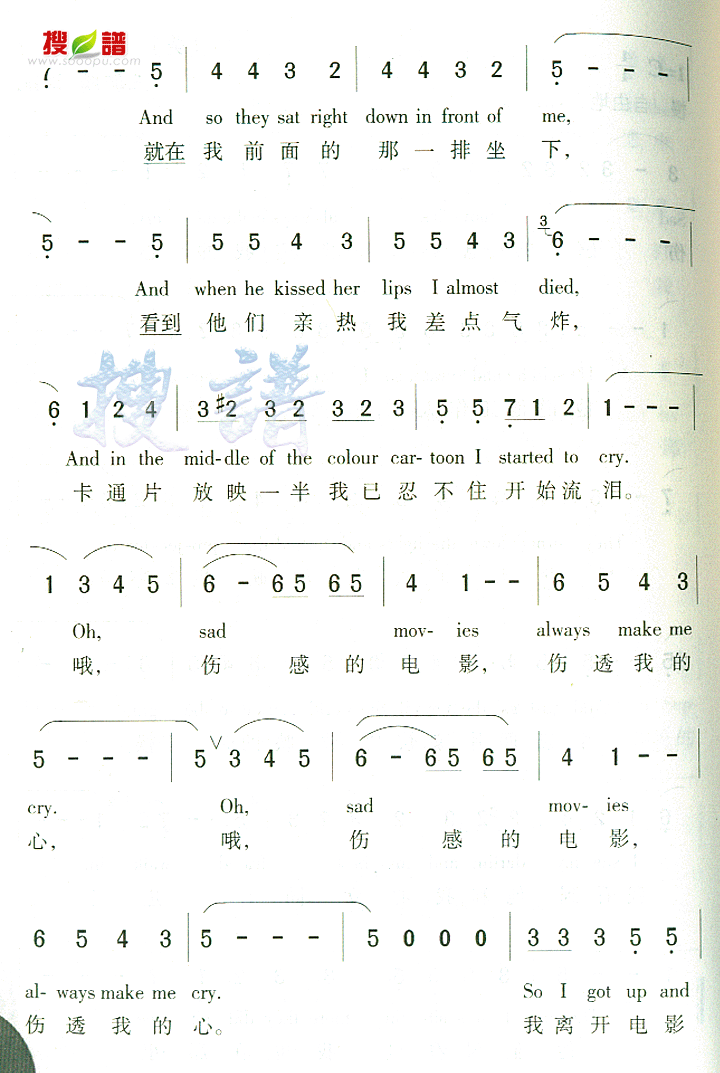 搜譜
www.sooopu.com
7 - - 5 | 4 4 3 2 | 4 4 3 2 | 5 - - - |
And so they sat right down in front of me,
就在 我 前 面 的 那 一 排 坐 下，
5 - - 5 | 5 5 4 3 | 5 5 4 3 | 3 6 - - - |
And when he kissed her lips I almost died,
看到 他 们 亲 热 我 差 点 气 炸，
6 1 2 4 | 3 #2 3 2 3 2 3 | 5 5 7 1 2 | 1 - - - |
搜譜
And in the mid-dle of the colour car-toon I started to cry.
卡 通 片 放 映 一 半 我 已 忍 不 住 开 始 流 泪。
1 3 4 5 | 6 - 6 5 6 5 | 4 1 - - | 6 5 4 3 |
Oh, sad mov- ies always make me
哦， 伤 感 的 电 影， 伤 透 我 的
5 - - - | 5 V 3 4 5 | 6 - 6 5 6 5 | 4 1 - - |
cry. Oh, sad mov- ies
心， 哦， 伤 感 的 电 影，
6 5 4 3 | 5 - - - | 5 0 0 0 | 3 3 3 5 5 |
al- ways make me cry. So I got up and
伤 透 我 的 心。 我 离 开 电 影